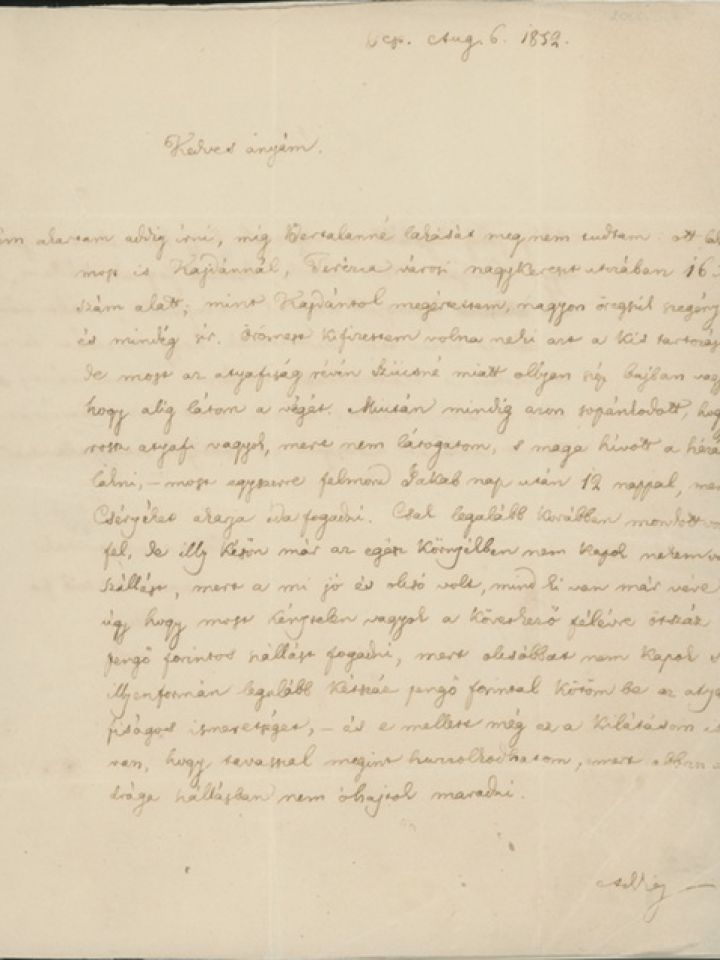 Aug. 6. 1852.
Kedves anyám.
akartam addig írni, míg Bertalanné lakását meg nem tudtam: ott
most is Kajdánnál, Terézia városi nagykereszt utczában 16
szám alatt; mint Kajdántol megértettem, nagyon öregszik szegény
és mindég sír. Örömest kifizettem volna neki azt a kis tartozás
de most az atyafiság révén Szücsné miatt ollyan bajban vagy
hogy alig látom a végét. Miután mindig azon sopánkodott, hogy
rossz atyafi vagyok, mert nem látogatom, s maga hívott a ház
lakni, – most egyszerre felmond Jakab nap után 12 nappal, mert
akarja oda fogadni. Csak legalább korábban mondott vo
fel, de illy késön már az egész környékben nem kapok nekem va
szállást, mert a mi jó és olcsó volt, mind ki van már véve
úgy hogy most kénytelen vagyok a következö félévre ötszáz
pengö forintos szállást fogadni, mert olcsóbbat nem kapok s
illyenformán legalább kétszáz pengö forintal kötöm be az atya
fiságos ismeretséget, – és e mellett még az a kilátásom is
van, hogy tavaszszal megint hurczolkodhatom, mert abban a
drága szállásban nem óhajtok maradni.